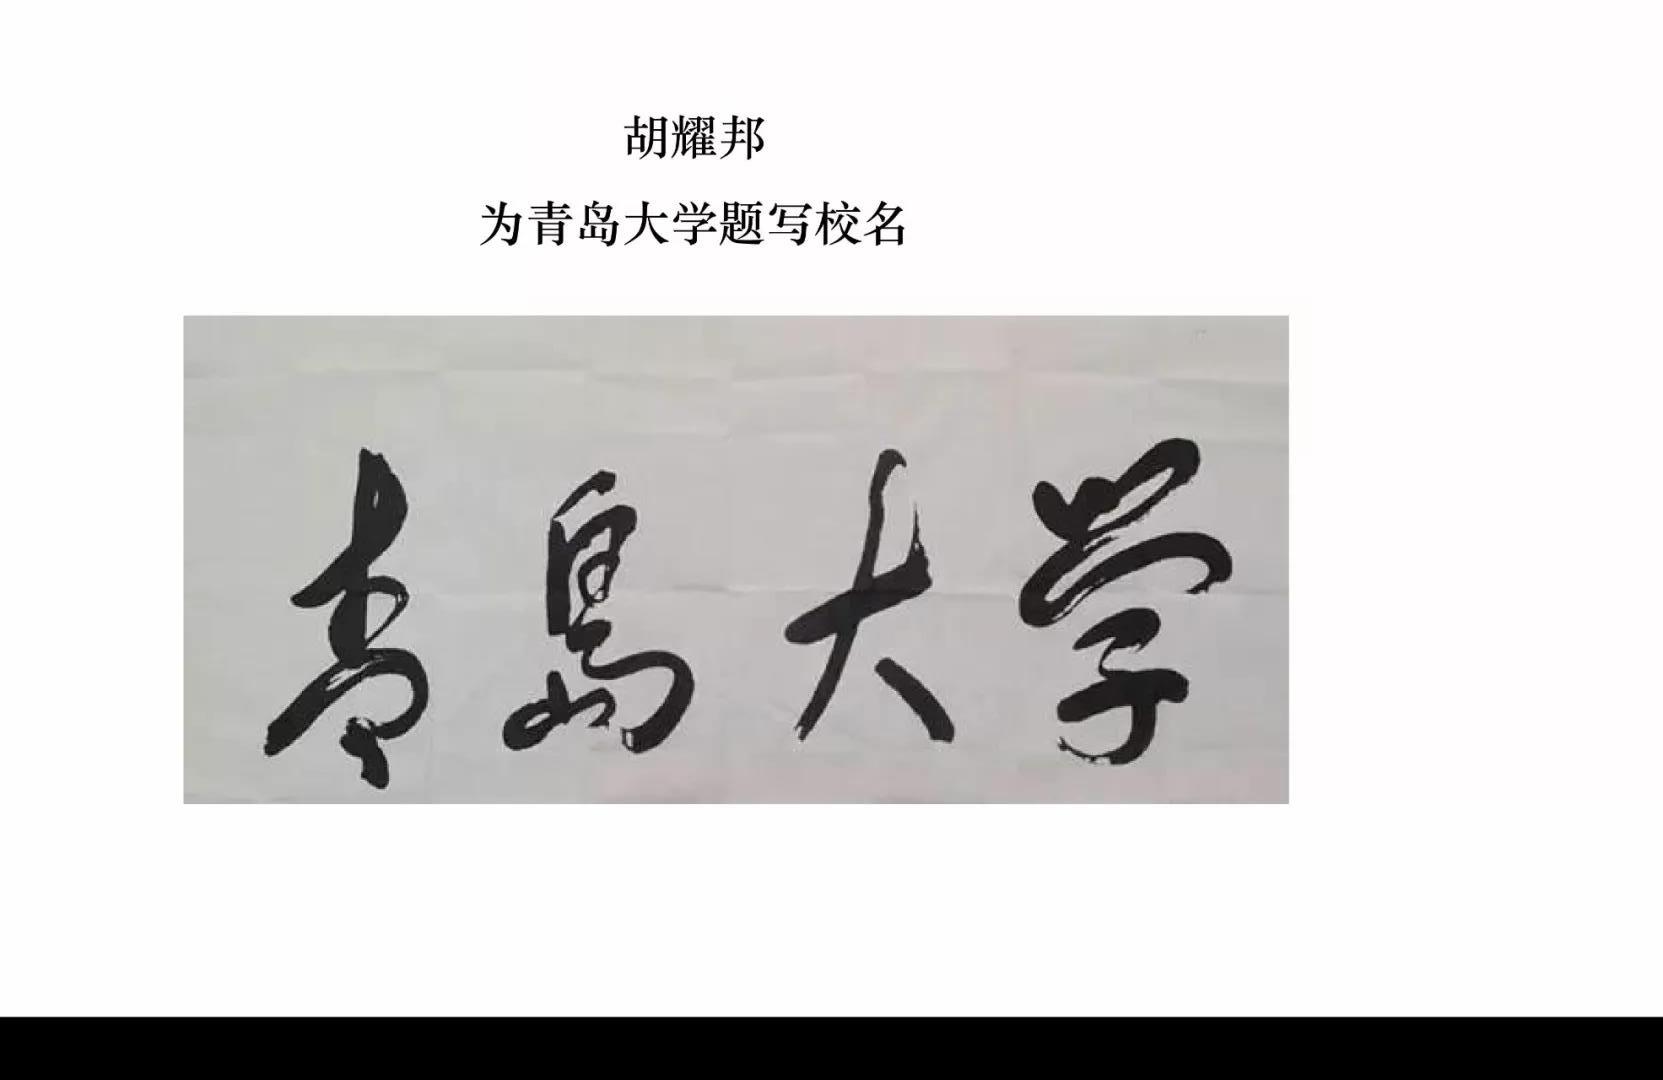 胡耀邦
为青岛大学题写校名
青岛大学